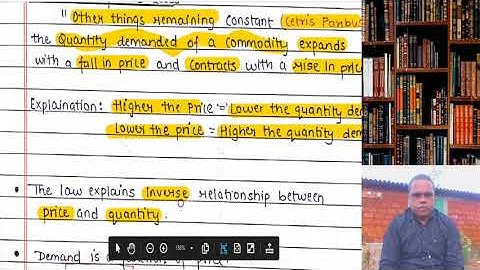 " Other things remaining constant (Cetris Paribus
the Quantity demanded of a commodity expands
with a fall in price and contracts with a rise in pric
Explaination: Higher the Price = Lower the quantity de
Lower the price = Higher the quantity dem
• The law explains Inverse relationship between
price and quantity.
• Demand is a